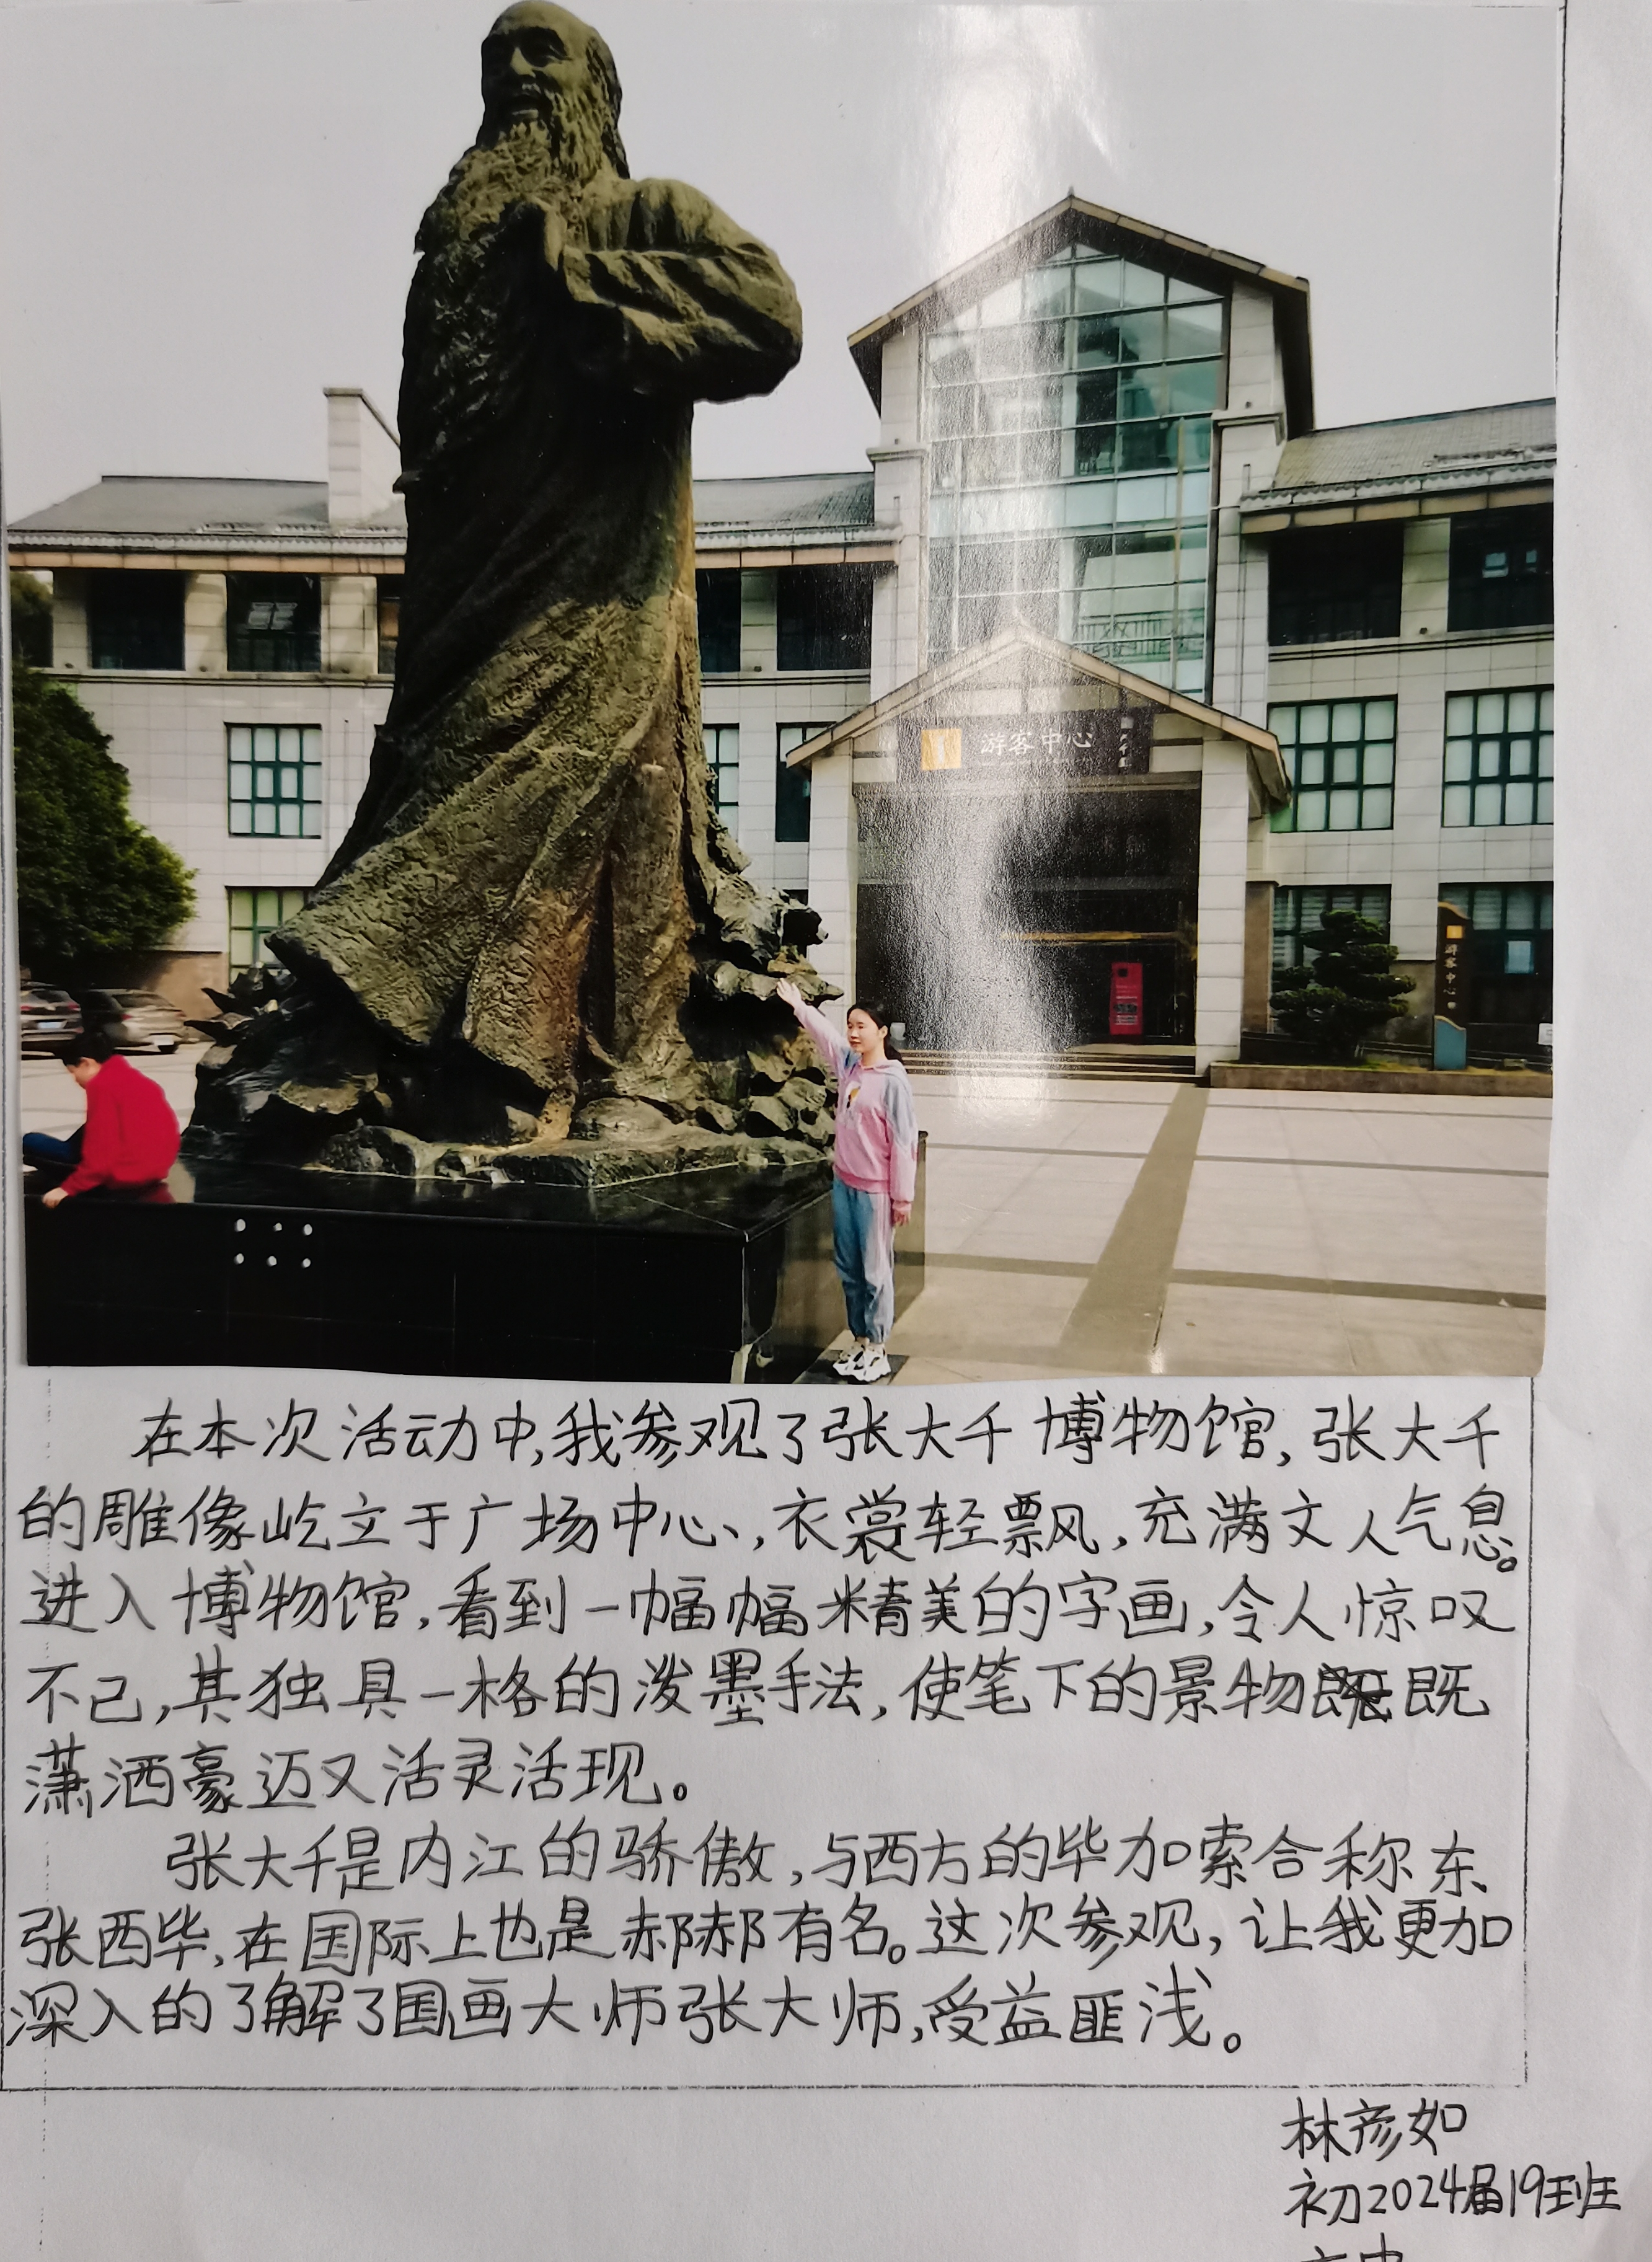 游客中心
游客中心
在本次活动中,我参观了张大千博物馆,张大千
的雕像屹立于广场中心,衣裳轻飘,充满文人气息。
进入博物馆,看到一幅幅精美的字画,令人惊叹
不己,其独具一格的泼墨手法,使笔下的景物既
潇洒豪迈又活灵活现。
张大千是内江的骄傲,与西方的毕加索合称东
张西毕,在国际上也是赫赫有名。这次参观,让我更加
深入的了解了国画大师张大师,受益匪浅。
林彦如
初2024届19班